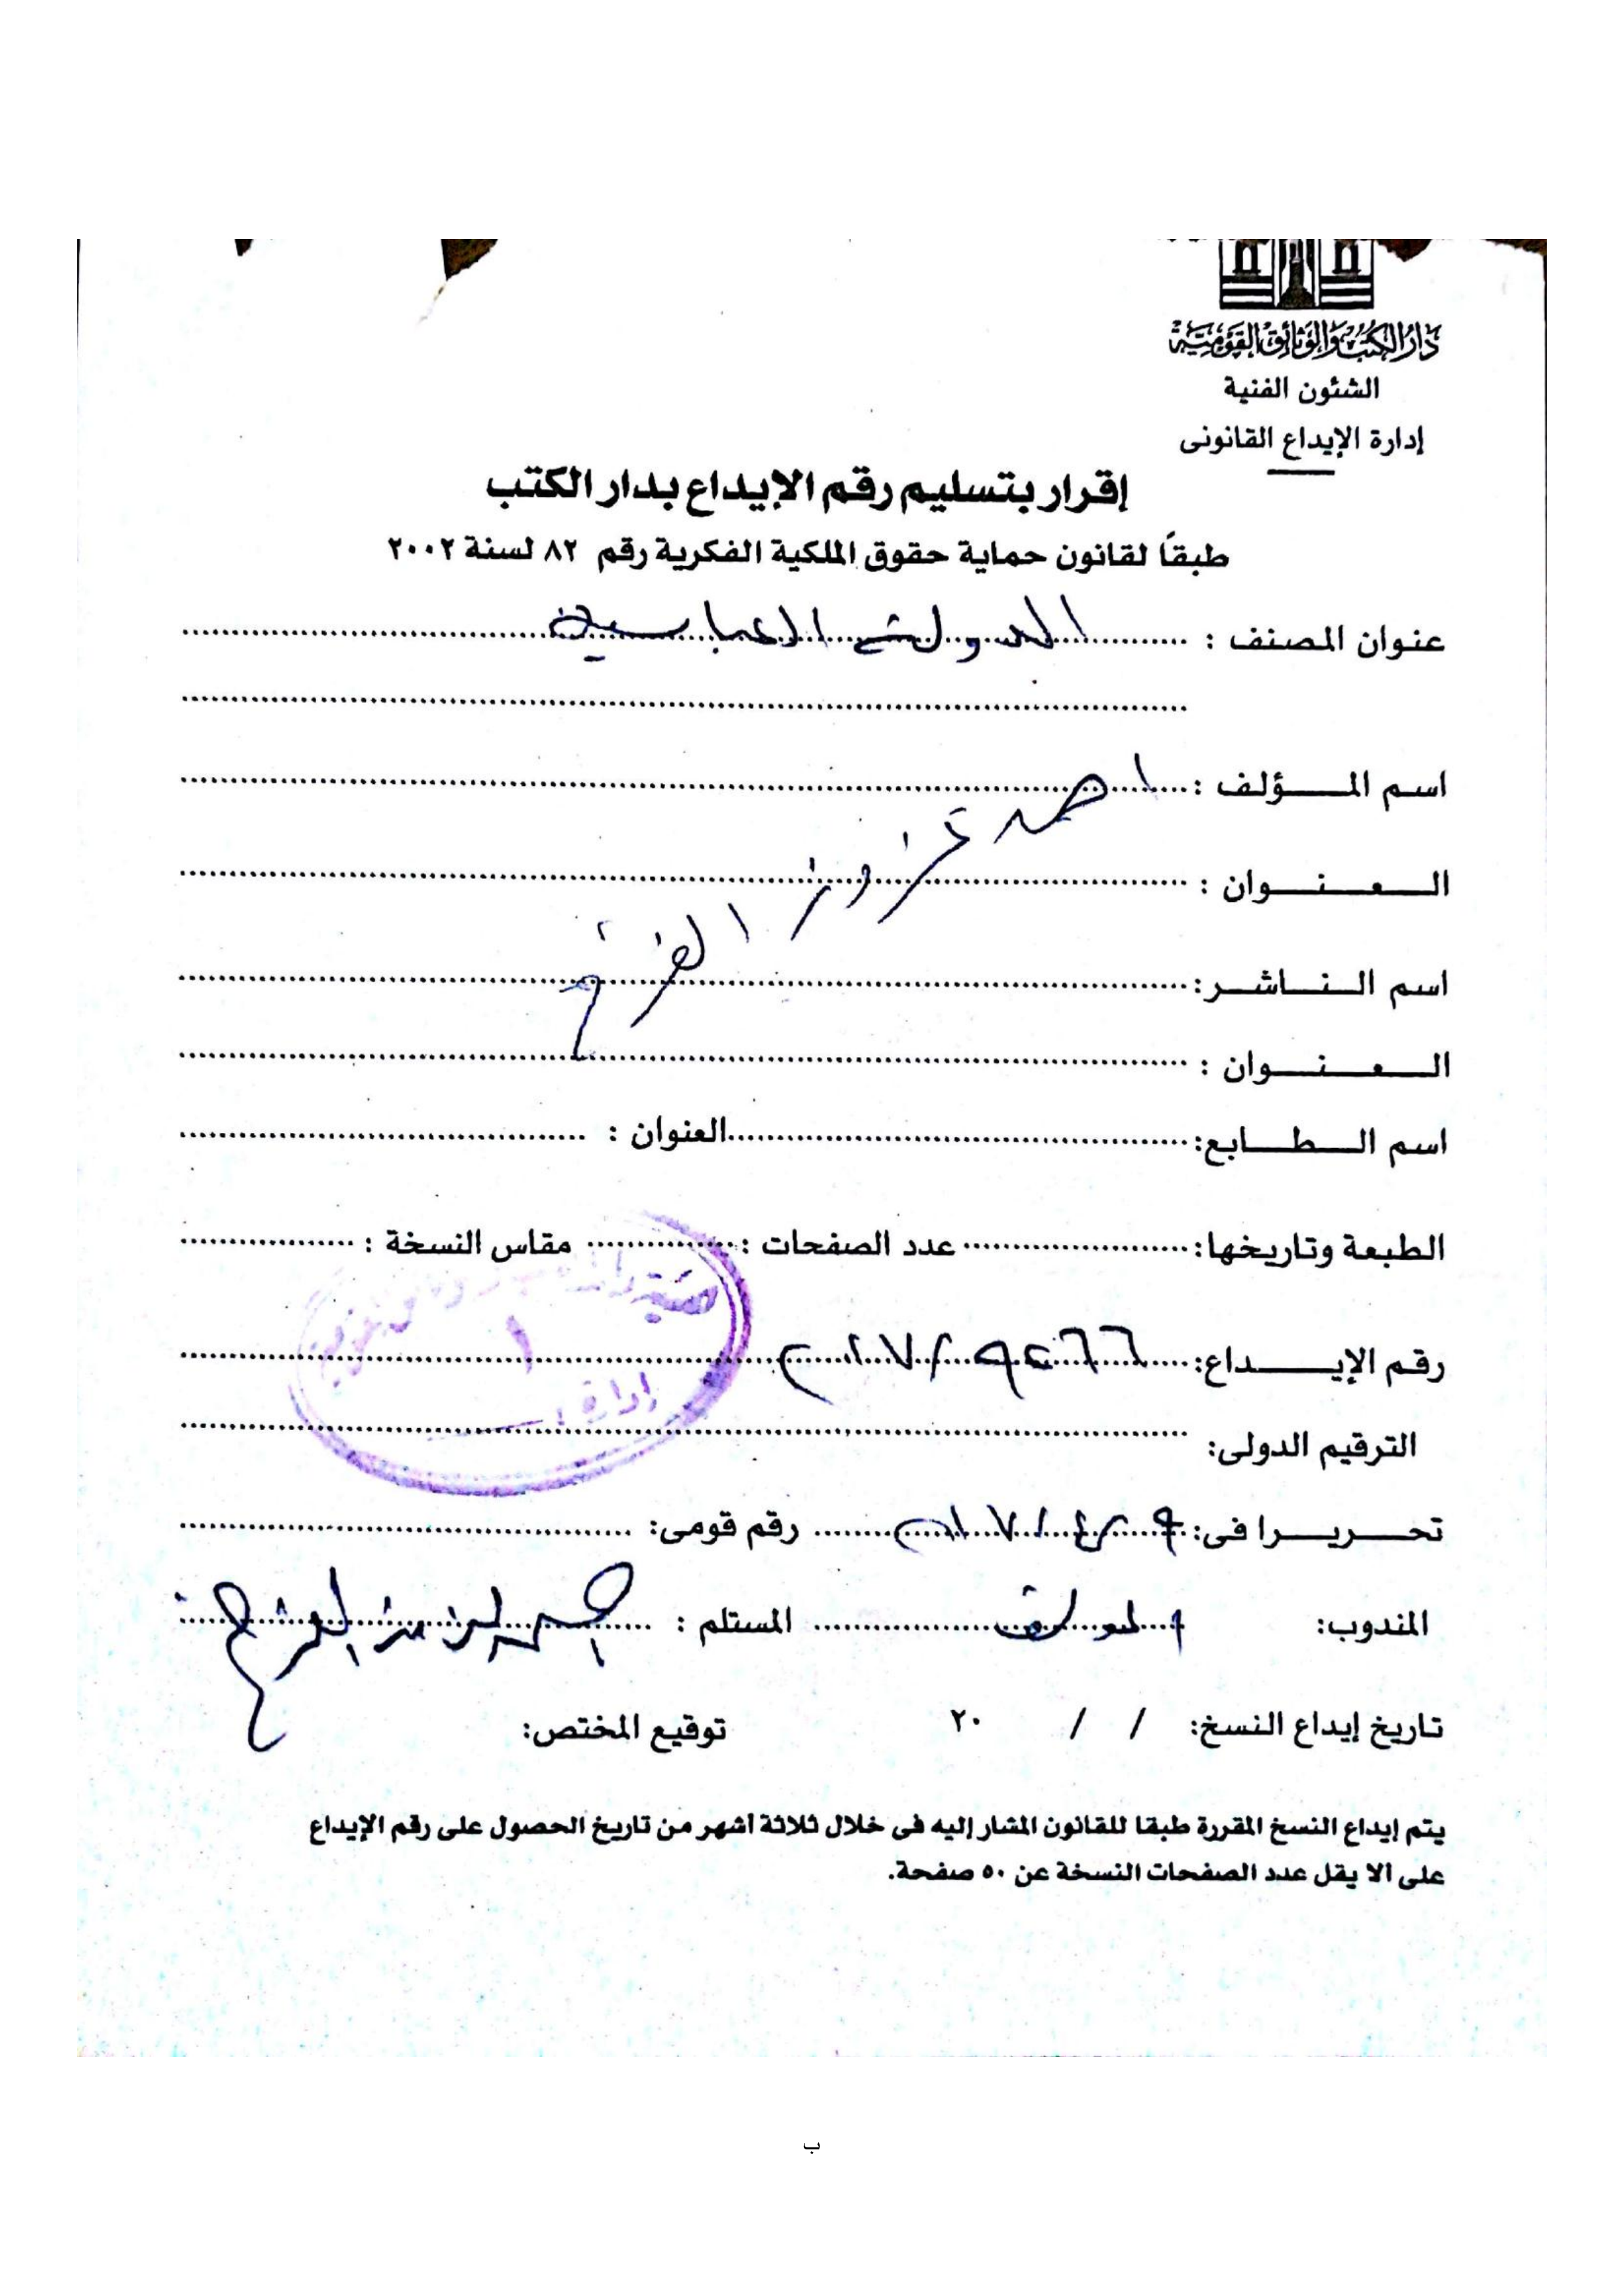 دار الكتب والوثائق القومية
الشئون الفنية
إدارة الإيداع القانونى
إقرار بتسليم رقم الإيداع بدار الكتب
طبقًا لقانون حماية حقوق الملكية الفكرية رقم ٨٢ لسنة ٢٠٠٢
عنوان المصنف : الدولة العباسية
اسم المؤلف : احمد عزوز الفرخ
العنوان :
اسم الناشر:
العنوان :
اسم الطابع: العنوان :
الطبعة وتاريخها: عدد الصفحات : مقاس النسخة :
رقم الإيداع:
الترقيم الدولى:
تحريرا فى: ٩/٤/٢٠١٧ رقم قومى:
المندوب: المؤلف المستلم :
تاريخ إيداع النسخ: / / ٢٠ توقيع المختص:
يتم إيداع النسخ المقررة طبقا للقانون المشار إليه فى خلال ثلاثة أشهر من تاريخ الحصول على رقم الإيداع
على ألا يقل عدد الصفحات النسخة عن ٥٠ صفحة.
ب